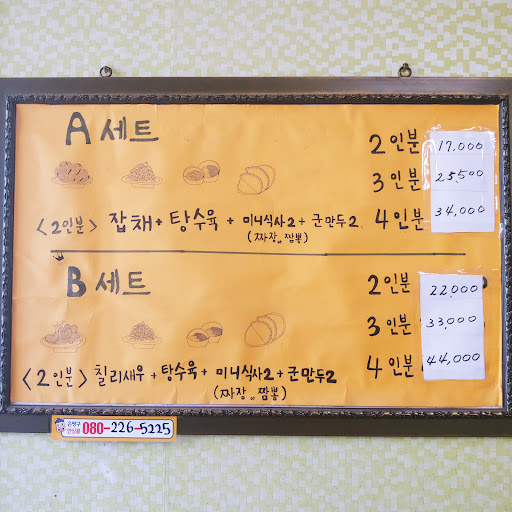 A 세트
2인분 17.000
3인분 25.500
4인분 34,000
<2인분> 잡채 + 탕수육 + 미니식사2 + 군만두2
(짜장 or 짬뽕)
B 세트
2인분 22,000
3인분 33,000
4인분 44,000
<2인분> 칠리새우 + 탕수육 + 미니식사2 + 군만두2
(짜장 or 짬뽕)
080-226-5225